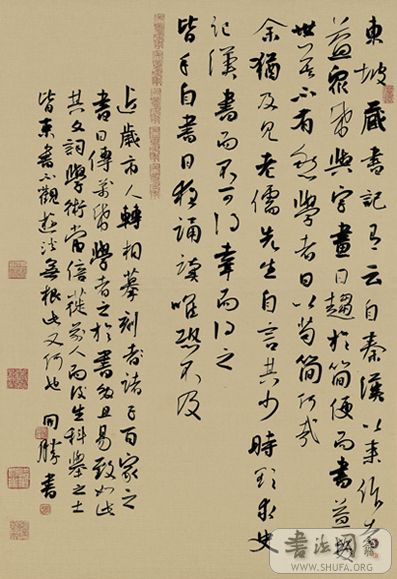 東坡藏書記有云自秦漢以來作者
益眾紙與字畫日趨於簡便而書益多
世莫不有然學者日以苟簡何哉
余猶及見老儒先生自言其少時欲求史
記漢書而不可得幸而得之
皆手自書日夜誦讀唯恐不及
近歲市人轉相摹刻者諸子百家之
書日傳萬紙學者之於書多且易致如此
其文詞學術當倍蓰昔人而後生科舉之士
皆束書不觀游談無根此又何也 同勝書
WWW.SHUFA.ORG